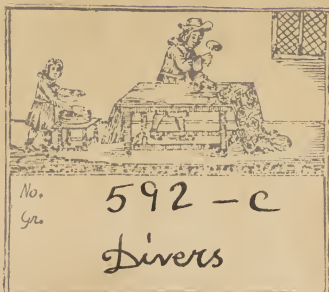 No. 592-C
Gr. Divers